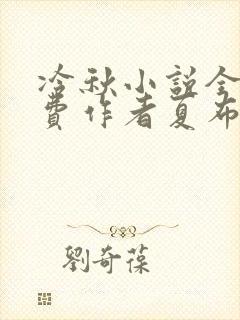 冷秋小説全
費作者夏布
劉奇葆